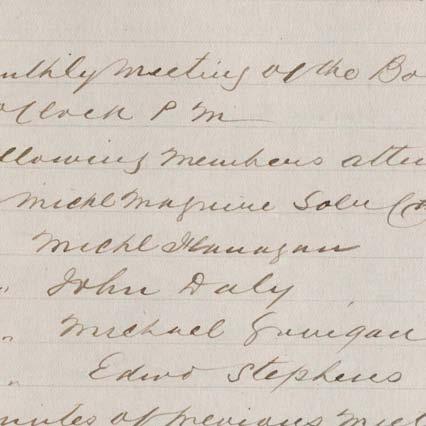 nthly Meeting of the Bo
oClock P M
ollowing Members atten
Michl Maguire
Michl Flanagan
" John Daly
" Michael Guigan
" Edwd Stephens
nutes of previous Meet